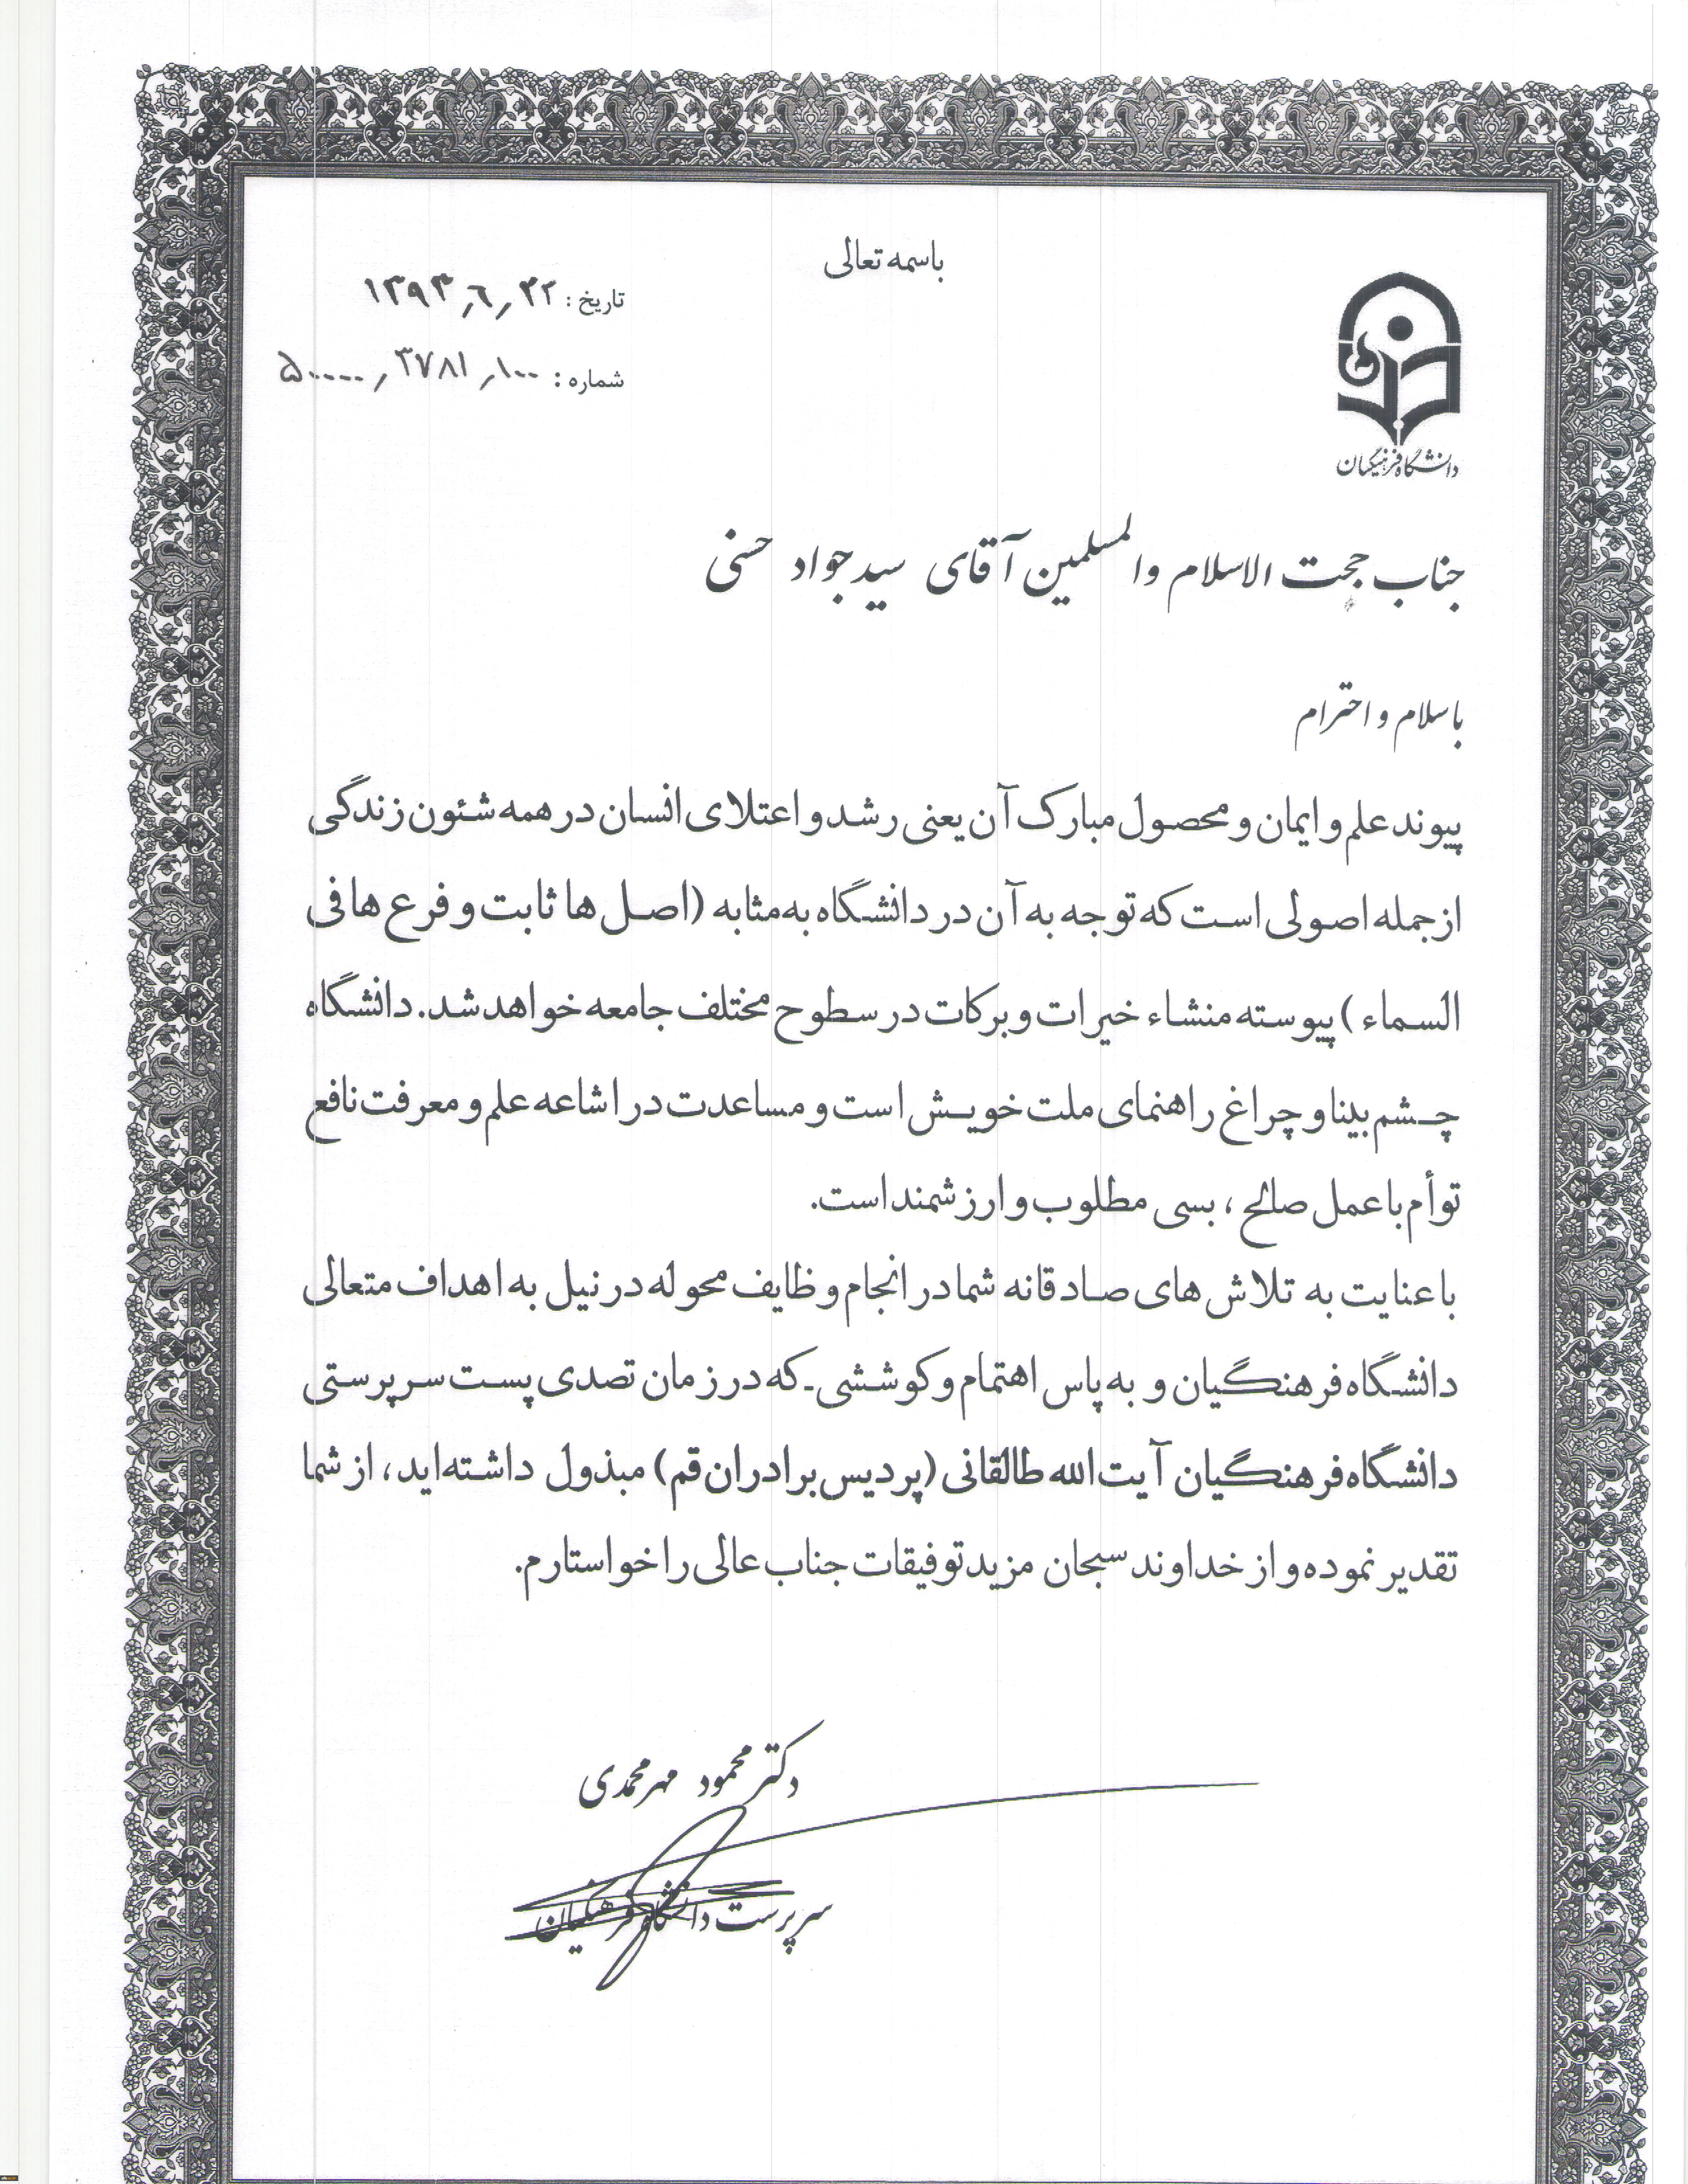 باسمه تعالی
تاریخ : ۱۳۹۳٫۶٫۲۲
شماره : ۵۰۰۰۰٫۳۷۸۱٫۱۰۰
دانشگاه فرهنگیان
جناب حجت الاسلام والمسلمین آقای سید جواد حسنی
با سلام و احترام
پیوند علم و ایمان و محصول مبارک آن یعنی رشد و اعتلای انسان در همه شئون زندگی
از جمله اصولی است که توجه به آن در دانشگاه به مثابه (اصل ها ثابت و فرع ها فی
السماء ) پیوسته منشاء خیرات و برکات در سطوح مختلف جامعه خواهد شد. دانشگاه
چشم بینا و چراغ راهنمای ملت خویش است و مساعدت در اشاعه علم و معرفت نافع
توأم با عمل صالح ، بسی مطلوب و ارزشمند است.
با عنایت به تلاش های صادقانه شما در انجام وظایف محوله در نیل به اهداف متعالی
دانشگاه فرهنگیان و به پاس اهتمام و کوششی-که در زمان تصدی پست سرپرستی
دانشگاه فرهنگیان آیت الله طالقانی (پردیس برادران قم) مبذول داشته‌اید، از شما
تقدیر نموده و از خداوند سبحان مزید توفیقات جناب عالی را خواستارم.
دکتر محمود مهرمحمدی
سرپرست دانشگاه فرهنگیان